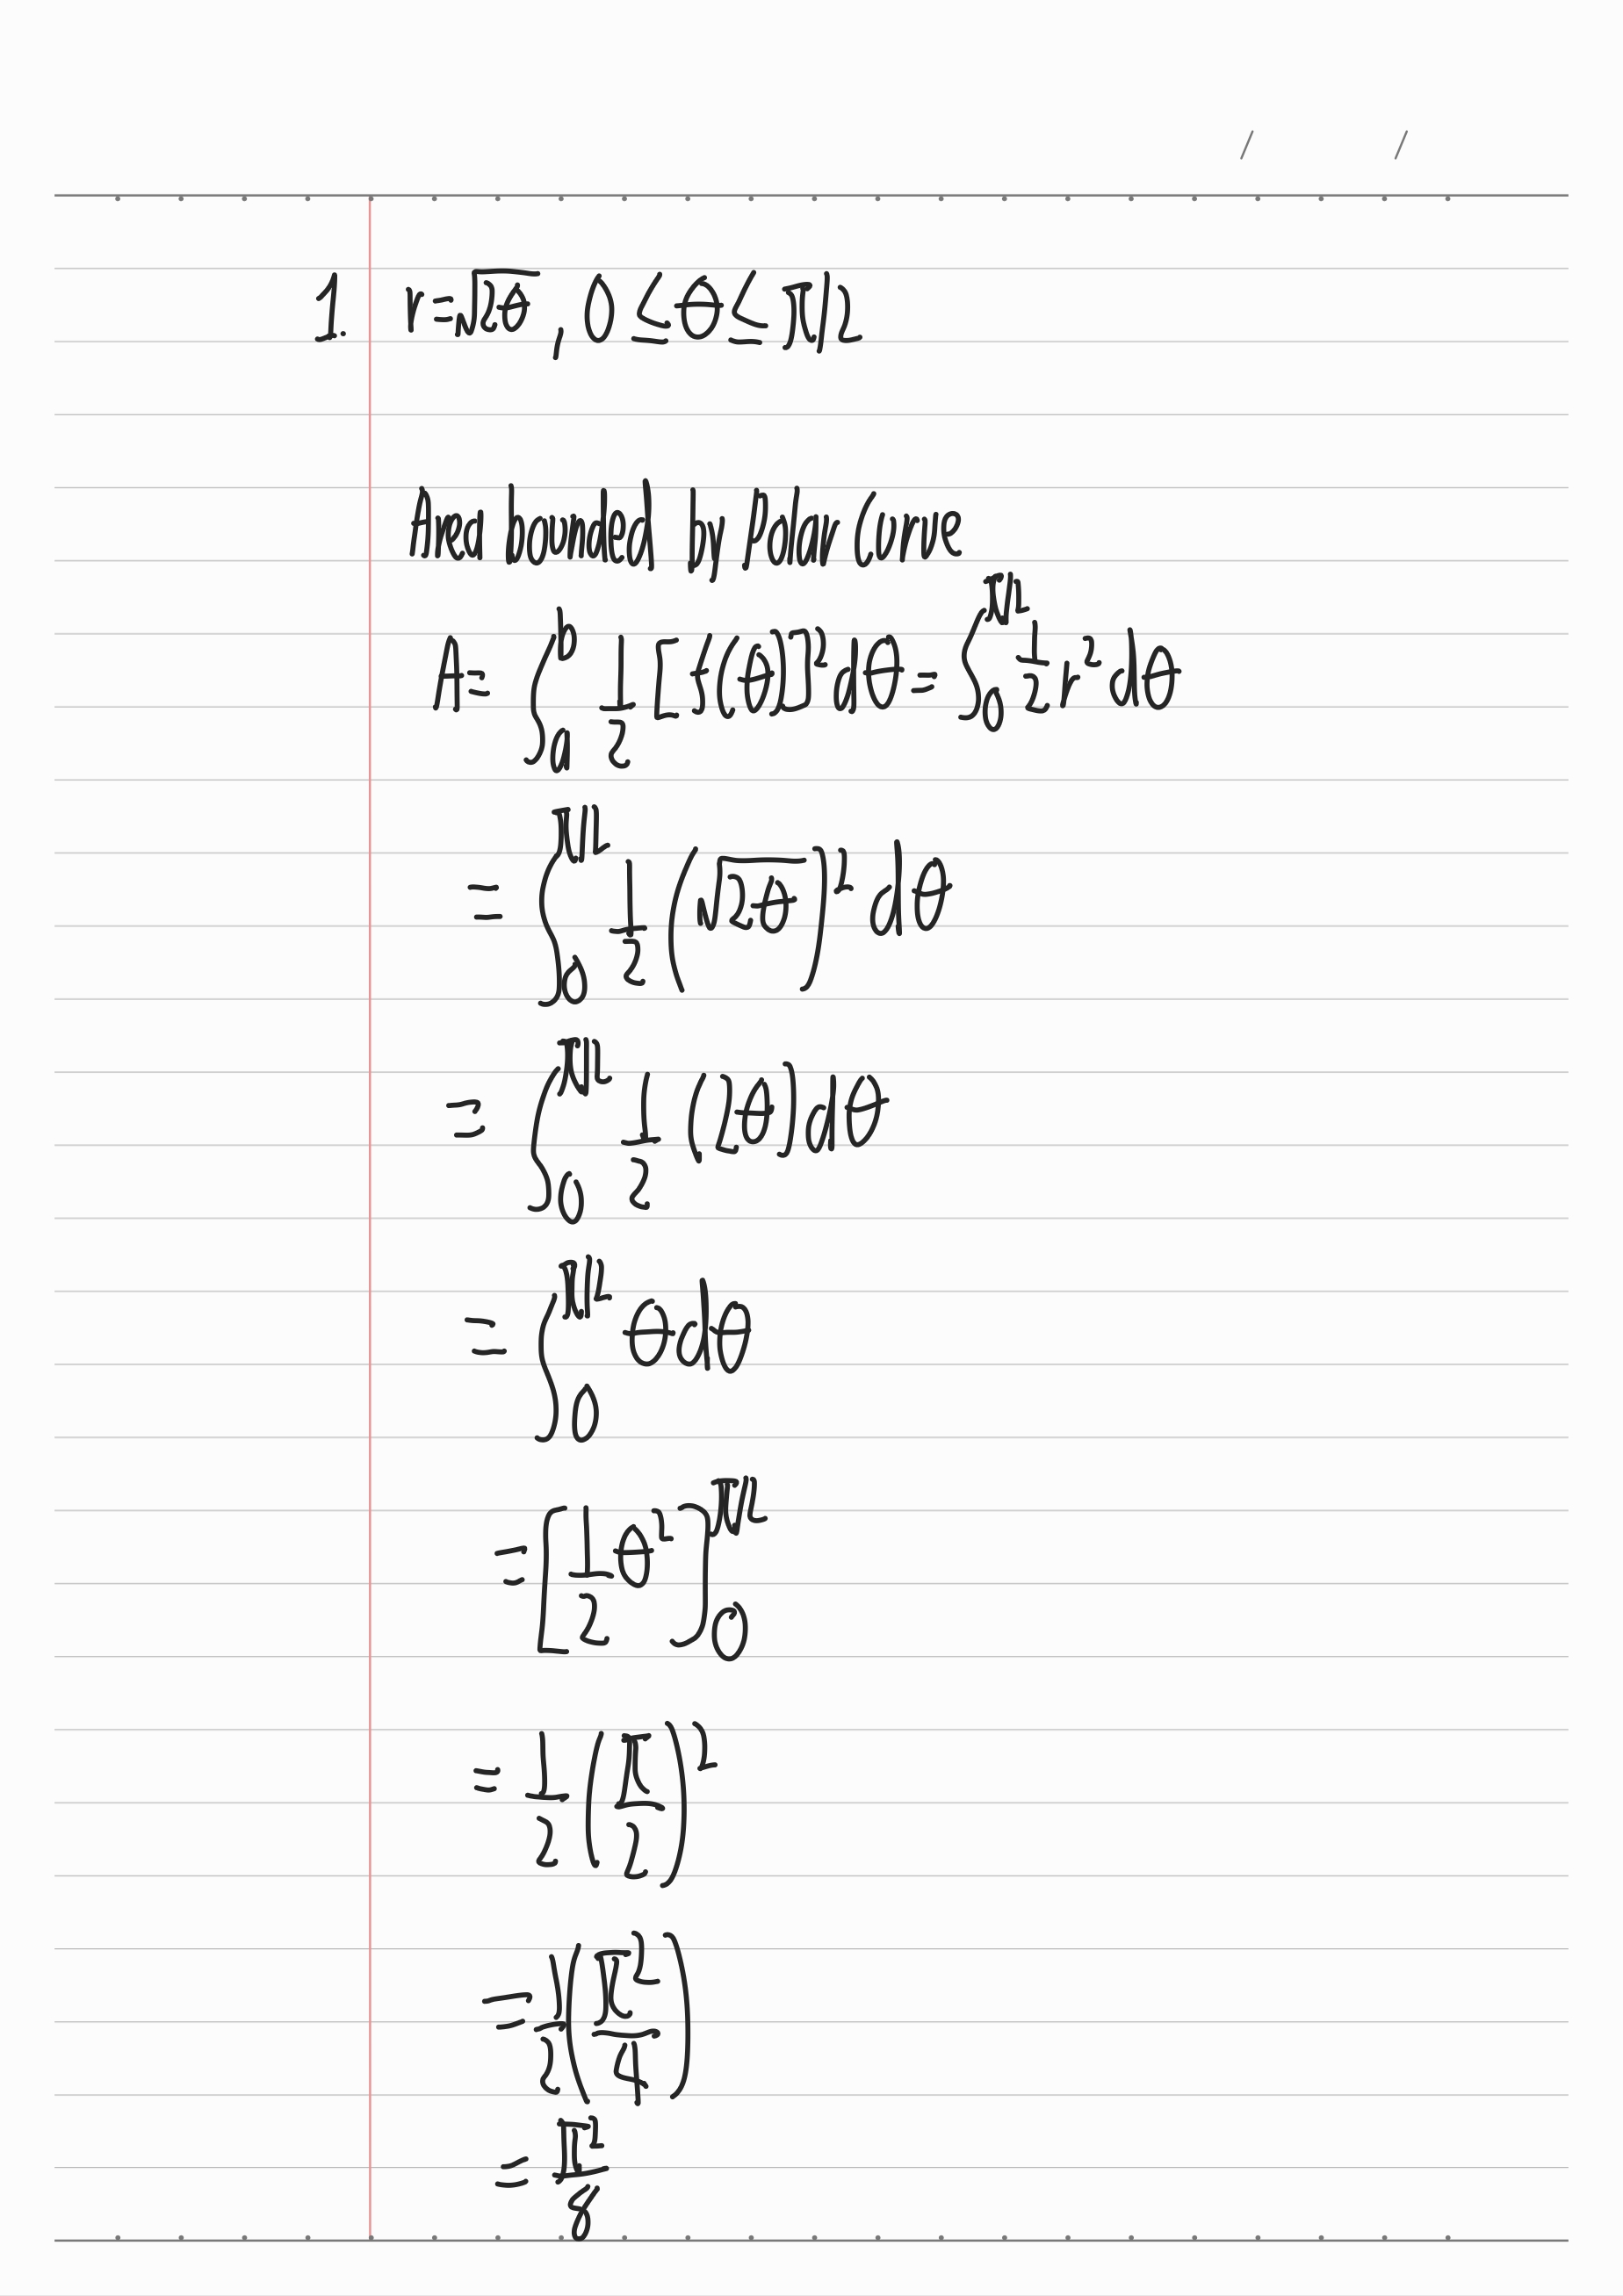 1. r=√2θ , 0≤θ≤π/2
Area bounded by Polar Curve
A= ∫_a^b 1/2 [f(θ)]² dθ = ∫_0^{π/2} 1/2 r² dθ
= ∫_0^{π/2} 1/2 (√2θ)² dθ
= ∫_0^{π/2} 1/2 (2θ) dθ
= ∫_0^{π/2} θ dθ
= [1/2 θ²]_0^{π/2}
= 1/2 (π/2)²
= 1/2 (π²/4)
= π²/8